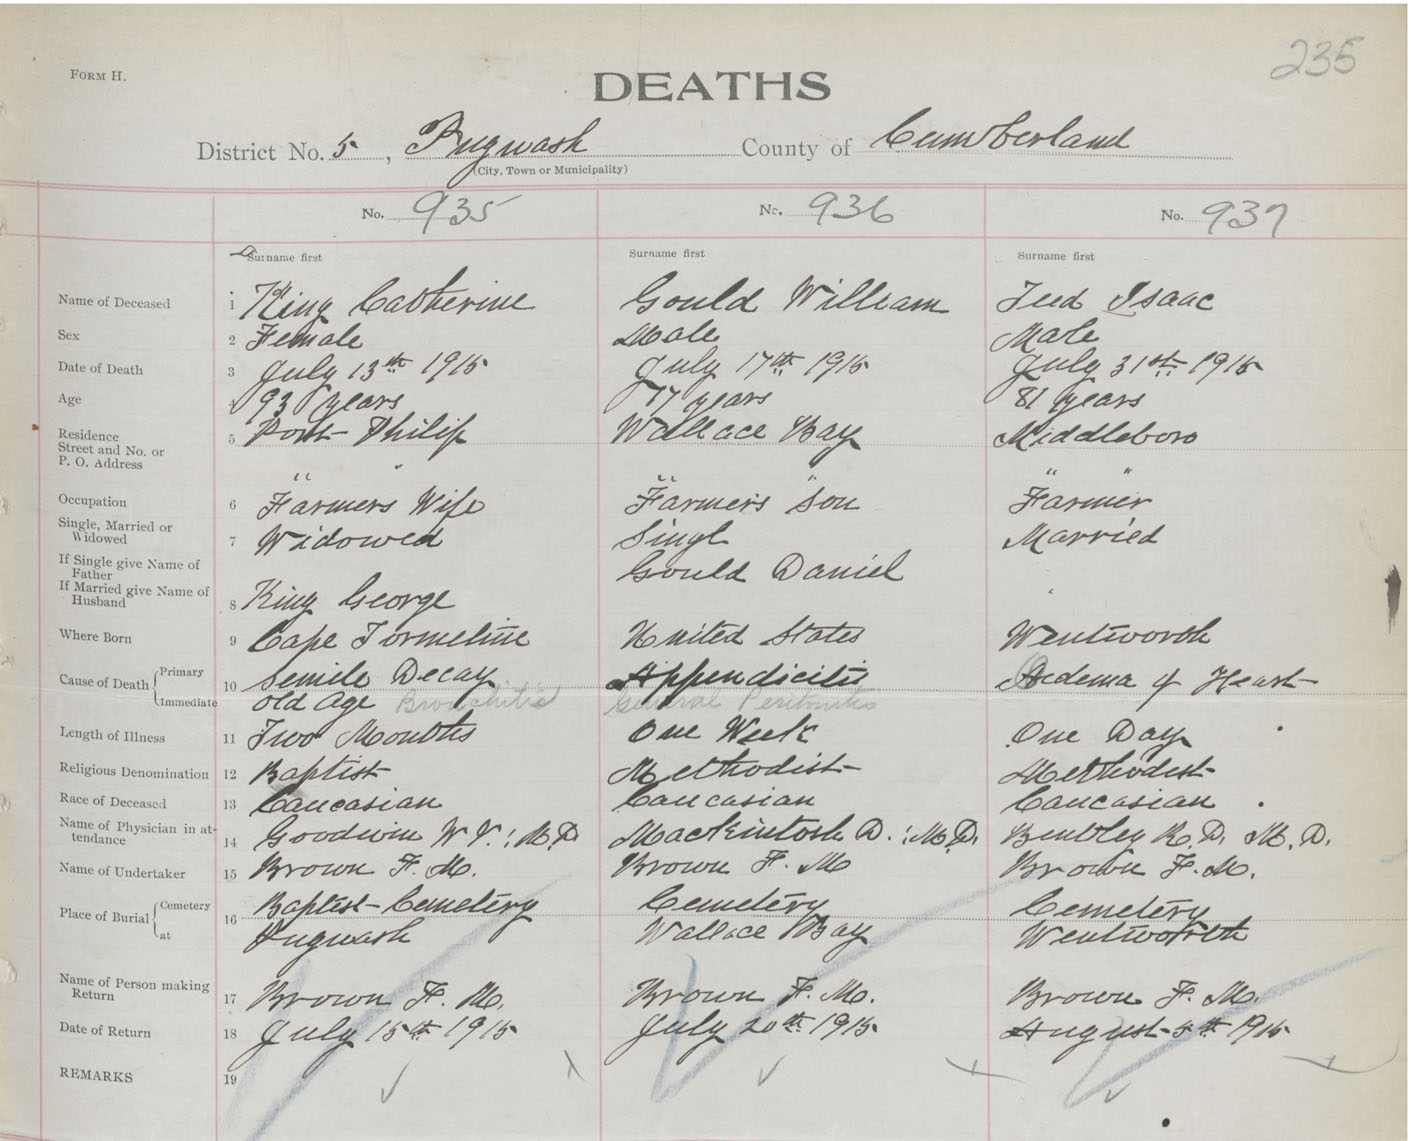 235
FORM H.
DEATHS
District No. 5, Pugwash County of Cumberland
(City, Town or Municipality)
No. 935 No. 936 No. 937
Surname first Surname first Surname first
Name of Deceased 1 King Catherine Gould William Teed Isaac
Sex 2 Female Male Male
Date of Death 3 July 13th 1915 July 17th 1915 July 31st 1915
Age 4 93 years 77 years 81 years
Residence Street and No. or P. O. Address 5 Port Philip Wallace Bay Middleboro
" " " " " "
Occupation 6 Farmers Wife Farmers Son Farmer
Single, Married or Widowed 7 Widowed Singl Married
If Single give Name of Father Gould Daniel
If Married give Name of Husband 8 King George
Where Born 9 Cape Tormetine United States Wentworth
Cause of Death { Primary 10 Senile Decay Appendicitis Oedema of Heart
Immediate Old Age Bronchitis General Peritonitis
Length of Illness 11 Two Months One Week One Day
Religious Denomination 12 Baptist Methodist Methodist
Race of Deceased 13 Caucasian Caucasian Caucasian
Name of Physician in attendance 14 Goodwin W V. : M.D MacKintosh D. : M.D. Bentley R. D. M. D.
Name of Undertaker 15 Brown F. M. Brown F. M Brown F. M.
Place of Burial { Cemetery 16 Baptist Cemetery Cemetery Cemetery
at Pugwash Wallace Bay Wentworth
Name of Person making Return 17 Brown F. M. Brown F. M. Brown F. M.
Date of Return 18 July 15th 1915 July 20th 1915 August 5th 1915
REMARKS 19